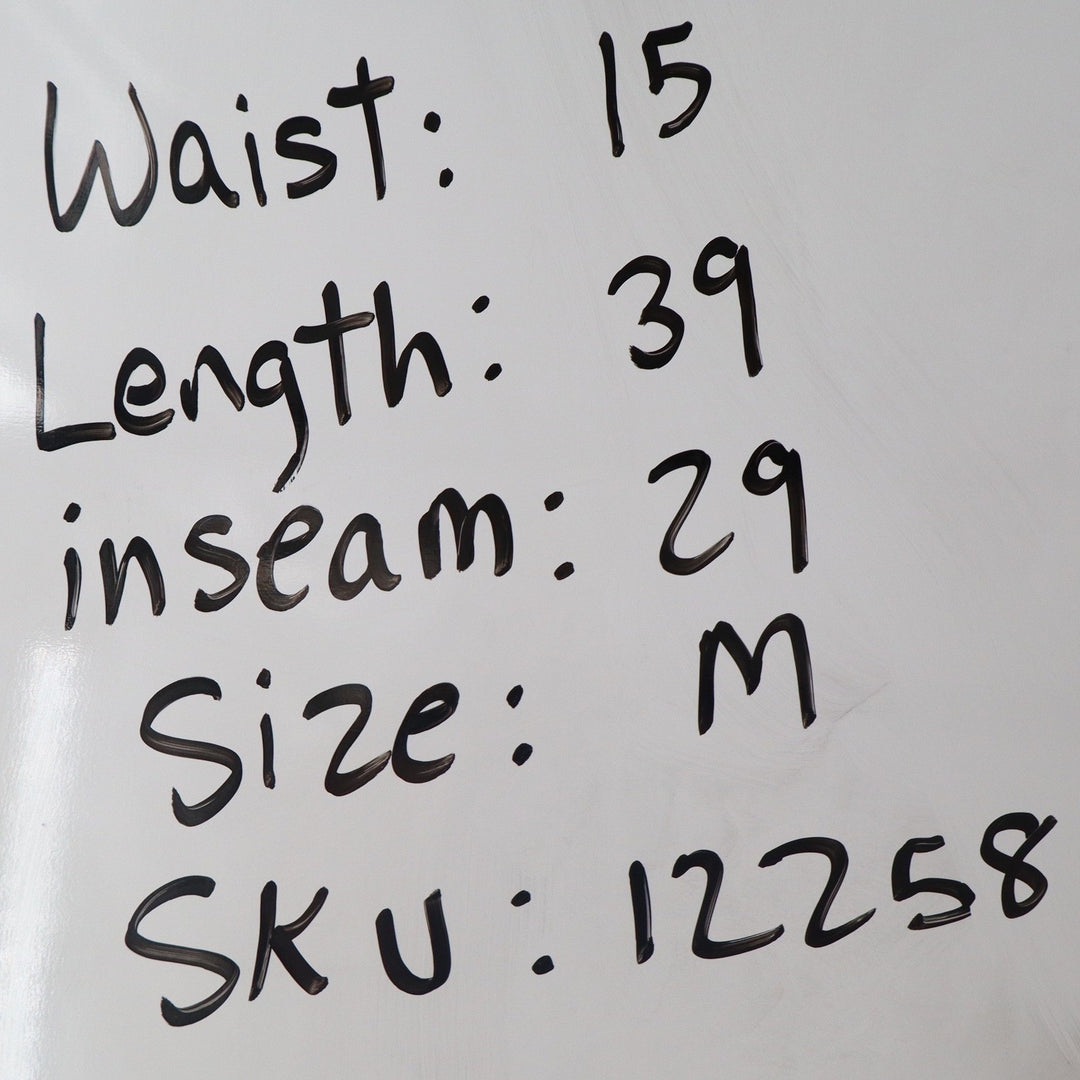 Waist: 15
Length: 39
inseam: 29
Size: M
SKU: 12258